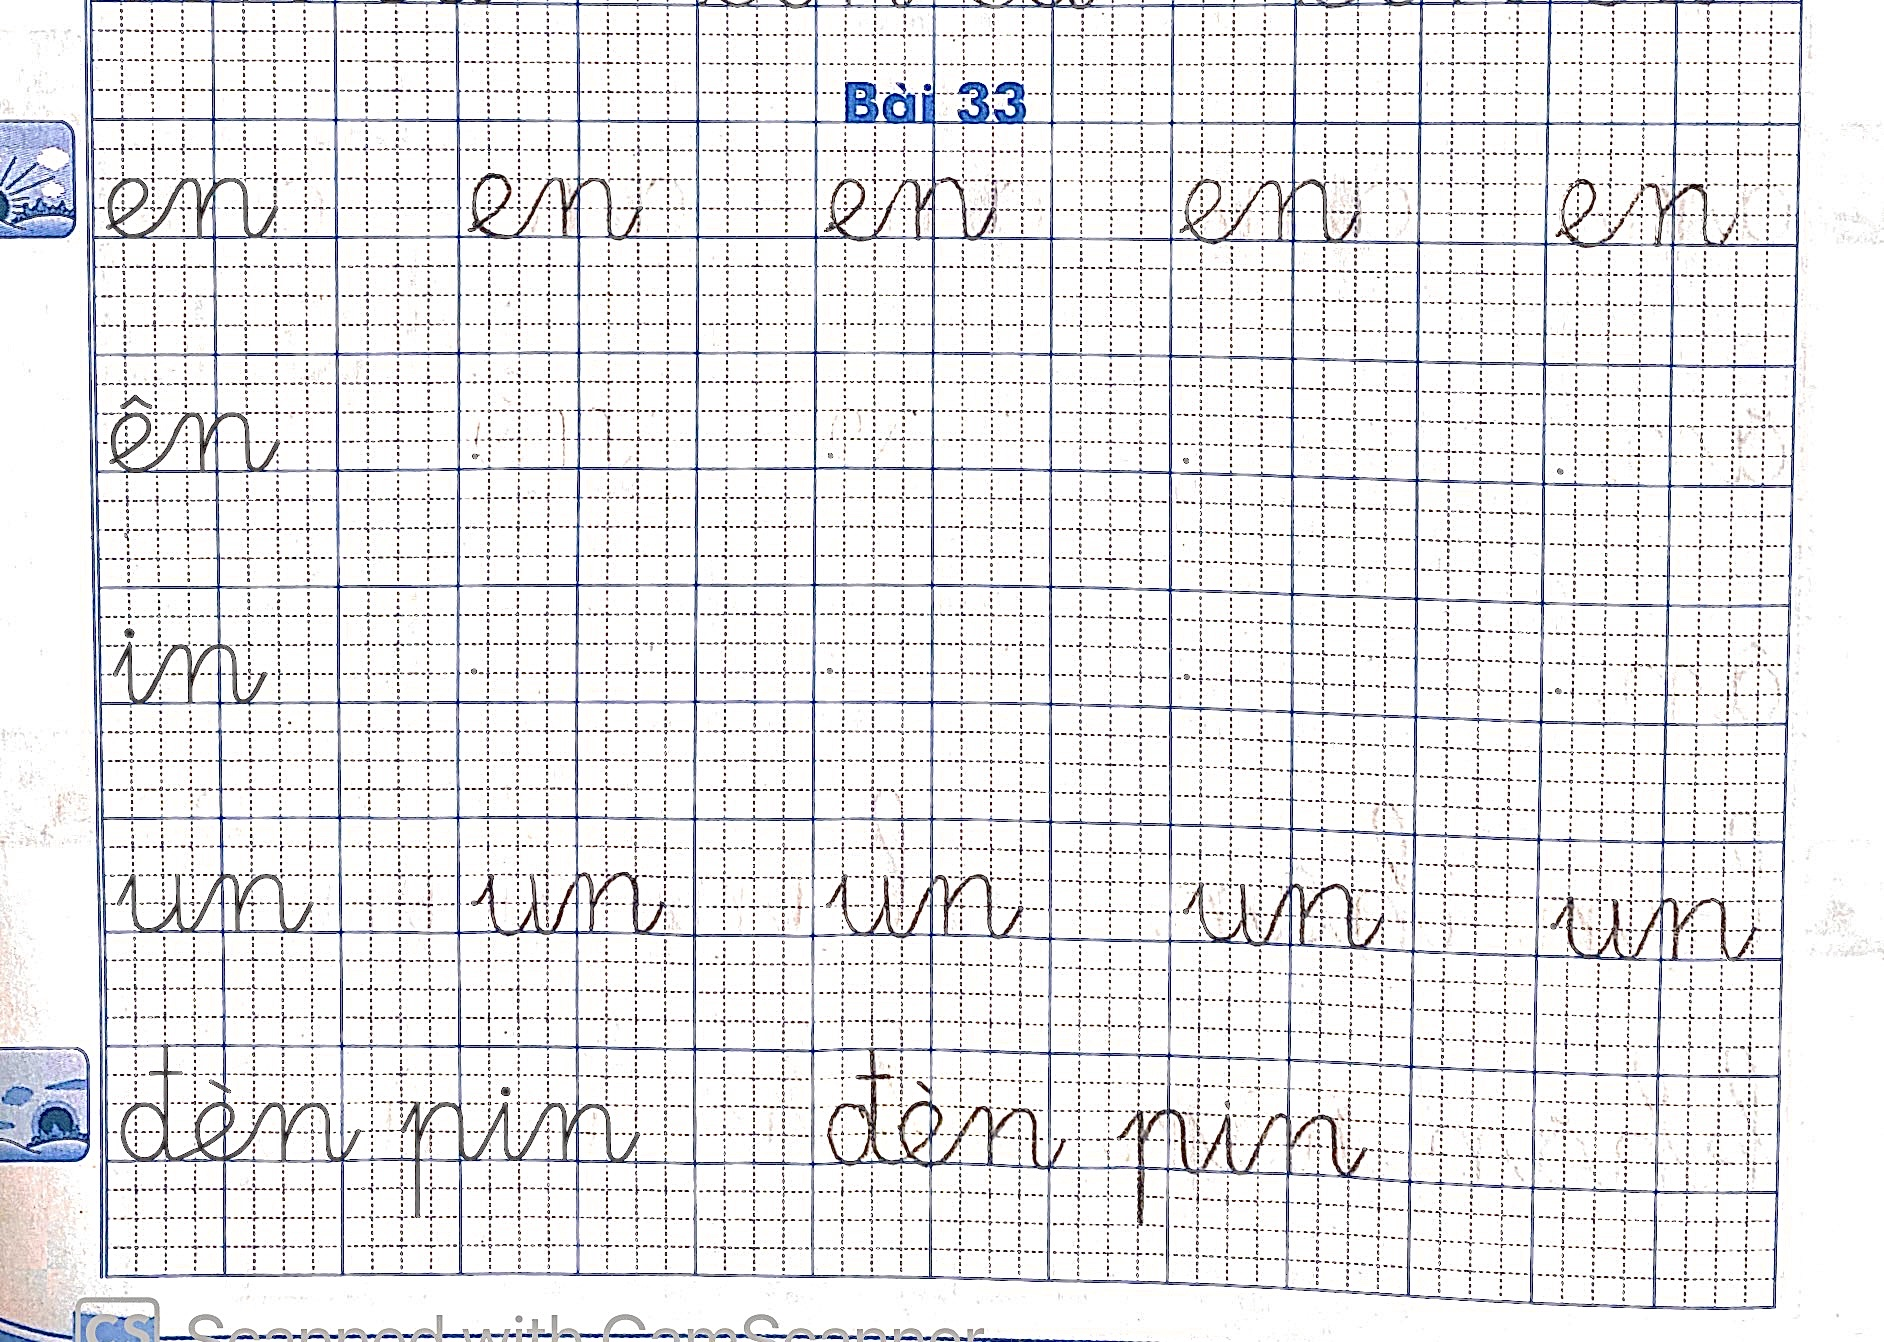 Bài 33
en en en en en
ên
in
un un un un un
đèn pin đèn pin
CS Scanned with CamScanner